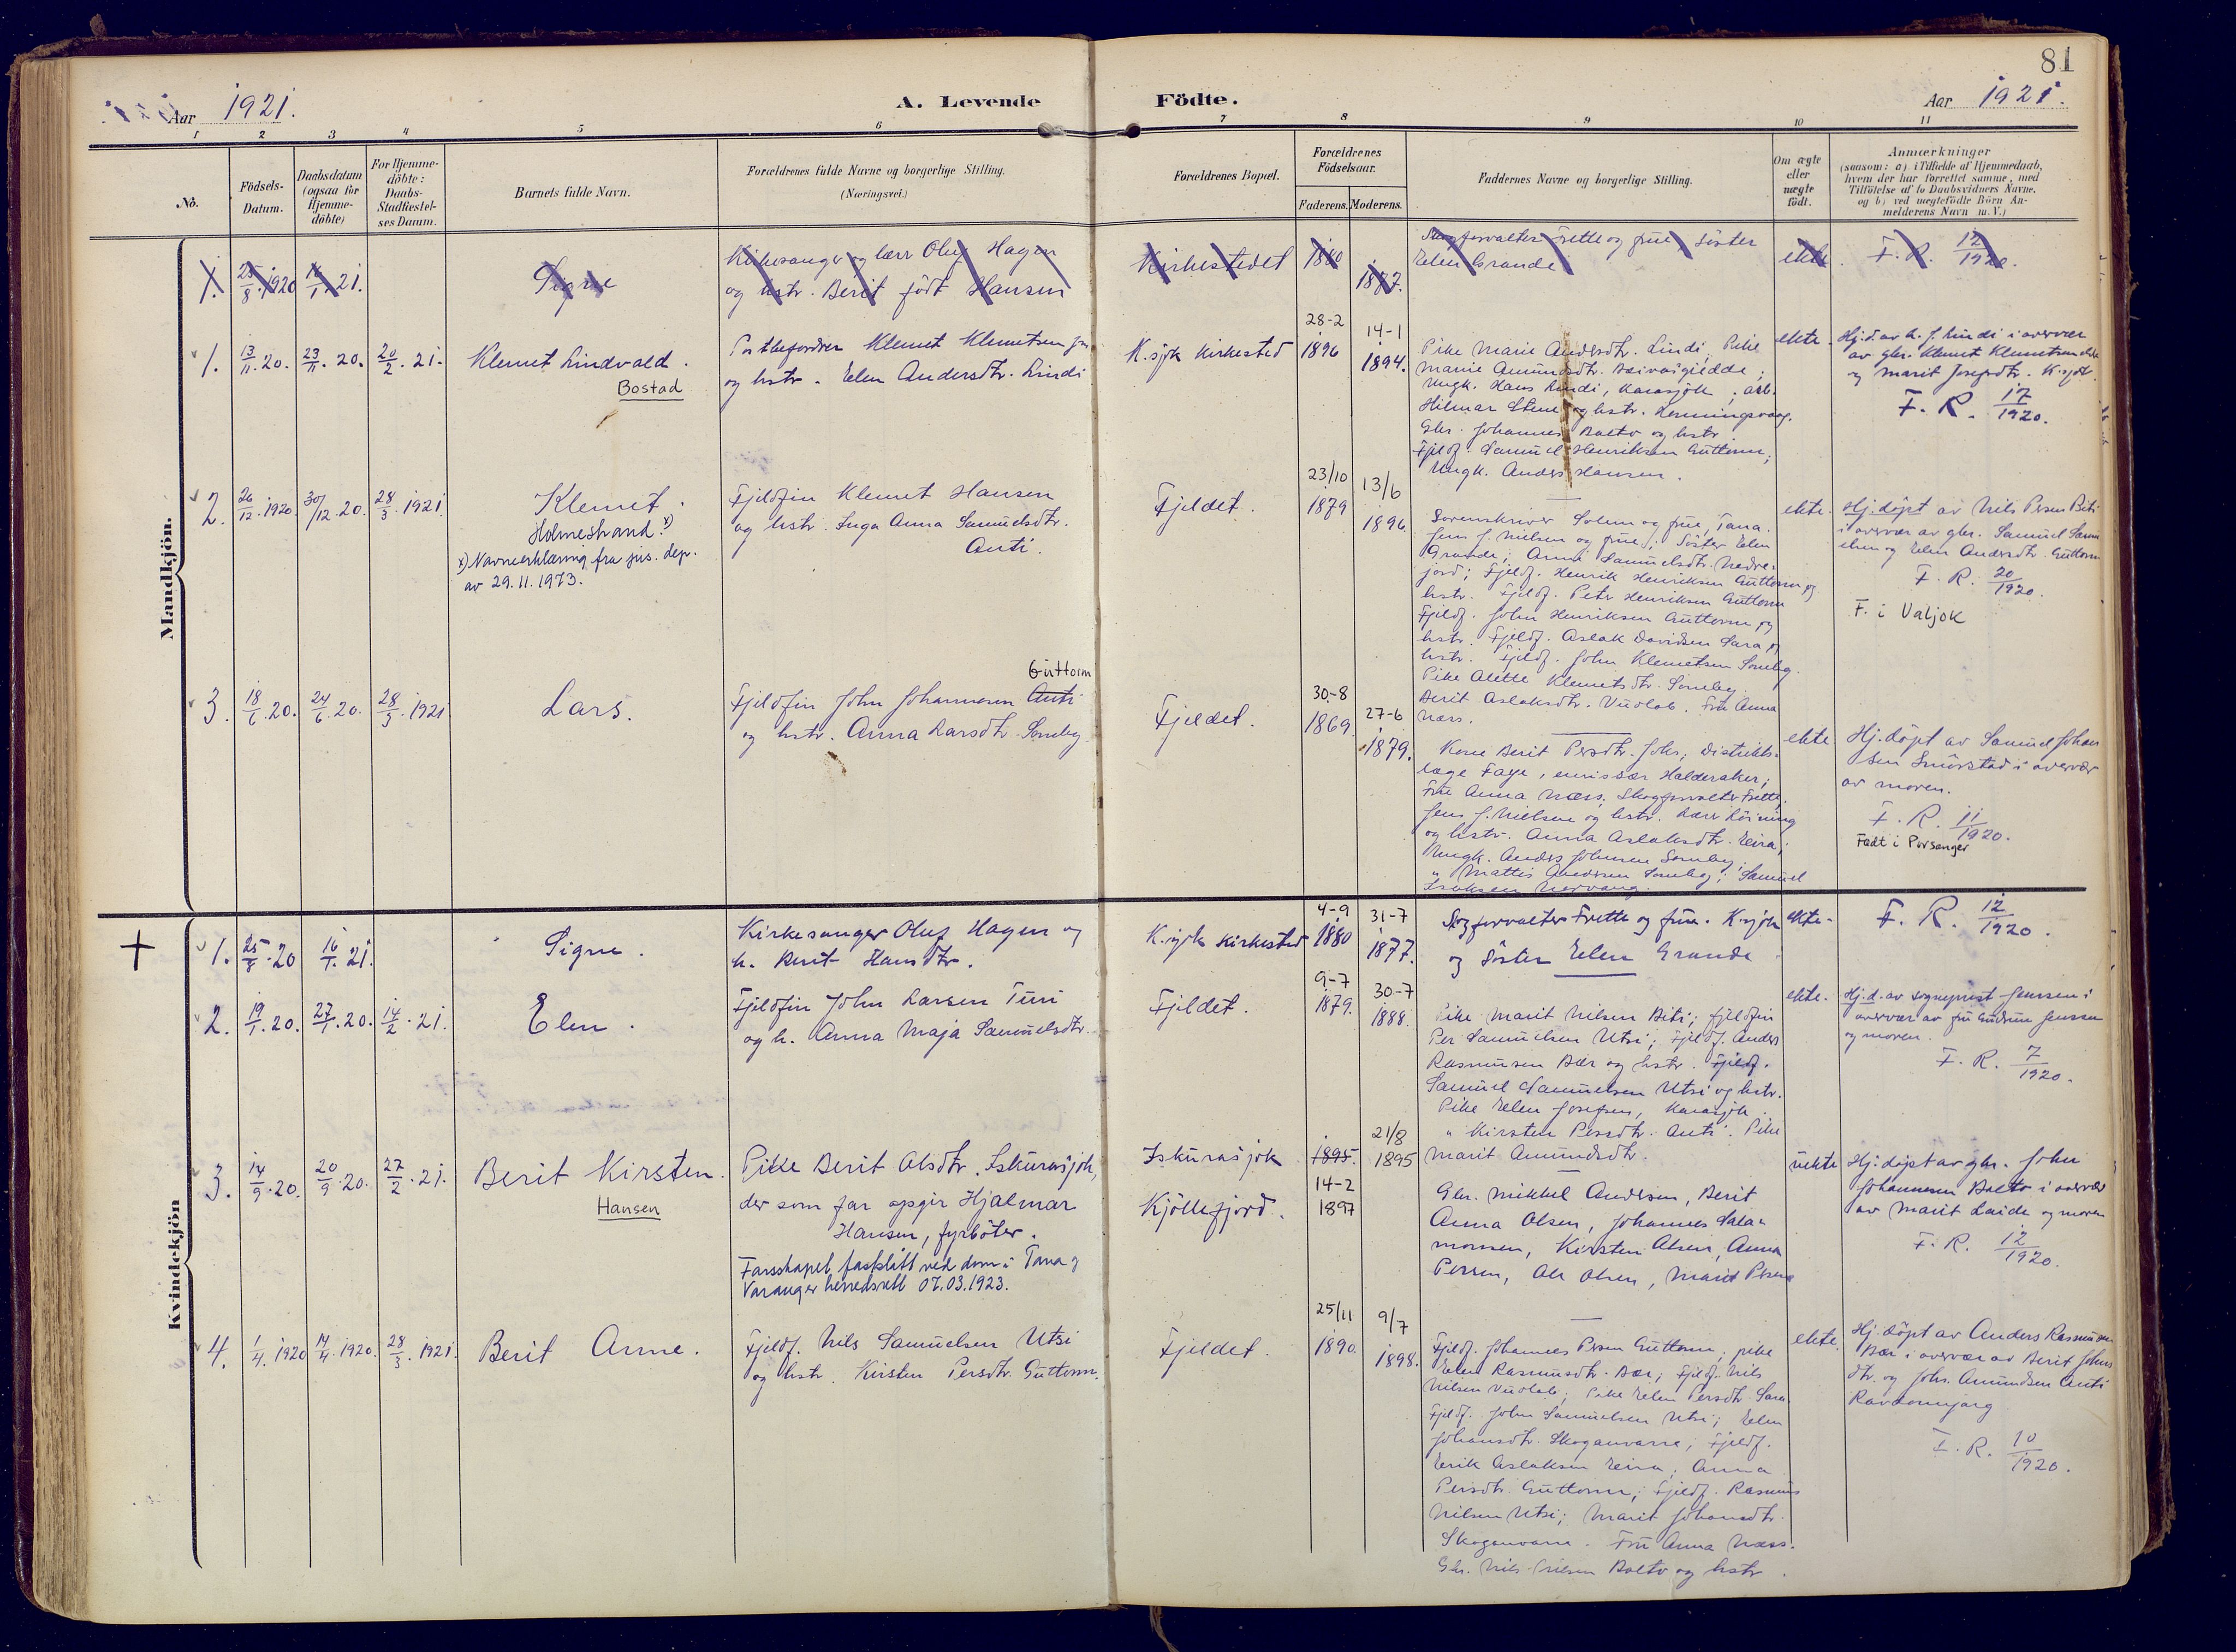 81
Aar 1921.
A. Levende
Födte.
Aar 1921.
1 2 3 4 5 6 7 8 9 10 11
No.
Födsels-
Datum.
Daabsdatum
(ogsaa for
Hjemme-
döbte)
For Hjemme-
döbte:
Daabs-
Stadfæstel-
ses Datum.
Barnets fulde Navn.
Forældrenes fulde Navne og borgerlige Stilling.
(Næringsvei.)
Forældrenes Bopæl.
Forældrenes
Födselsaar.
Faderens. Moderens.
Faddernes Navne og borgerlige Stilling.
Om ægte
eller
uægte
födt.
Anmærkninger
(saasom: a) i Tilfælde af Hjemmedaab,
hvem der har forrettet samme, med
Tilföielse af to Daabsvidners Navne,
og b) ved uægtefödte Börn An-
melderens Navn m. V.)
Mandkjön.
1. 25/8.1920 16/1.21.
Signe
Kirkesanger og lærer Oluf Hagen
og hstr. Berit født Hansen
Kirkestedet
1880
1877.
Skogforvalter Frette og frue, Søster
Elen Grande
ekte.
F. R. 12/1920.
1. 13/11.20. 23/11.20. 20/2.21.
Klemet Lindvald.
Bostad
Postbefordrer Klemet Klemetsen jr.
og hstr. Elen Andersdtr. Lindi
K.sjok Kirkested
28-2
1896
14-1
1894.
Pike Marie Andersdtr. Lindi, Pike
Marie Amundsdtr.
Ungk. Hans Lindi, Karasjok, arb.
Hilmar Stene og hstr. Henningsvaag.
Gbr. Johannes Balto og hstr.
Fjeldf. Samuel Henriksen Guttorm,
Ungk. Anders Hansen.
ekte.
Hj.d. av A. J. Lindi i overvær
av gbr. Klemet Klemetsen
og Marit Josefsdtr. K.sjok.
F. R. 17/1920.
2. 26/12.1920. 30/12.20. 28/3.1921
Klemet.
Holmestrand. x)
x) Navneerklæring fra jus. dep.
av 29.11.1973.
Fjeldfin Klemet Hansen
og hstr. Inga Anna Samuelsdtr.
Anti.
Fjeldet.
23/10
1879
13/6
1896.
Sorenskriver Solem og frue, Tana.
Jens J. Nielsen og frue; Søster Elen
Grande; Anna Samuelsdtr. Nedre-
jord; Fjeldf. Henrik Henriksen Guttorm og
hstr. Fjeldf. Petr Henriksen Guttorm
Fjeldf. John Henriksen Guttorm og
hstr. Fjeldf. Aslak Davidsen Sara og
hstr. Fjeldf. John Klemetsen Somby.
Pike Alette Klemetsdtr. Somby.
Berit Aslaksdtr. Vuolab. Fru Anna
Næss.
ekte.
Hj.døpt av Nils Persen Biti
i overvær av gbr. Samuel Samu
elsen og Elen Andersdtr. Guttorm
F. R. 20/1920.
F. i Valjok
3. 18/6.20. 24/6.20. 28/3.1921
Lars.
Guttorm
Fjeldfin John Johannesen Anti
og hstr. Anna Larsdtr. Somby
Fjeldet.
30-8
1869.
27-6
1879.
Kone Berit Persdtr. Johs, Distrikts-
læge Faye, emissær Halderaker;
Fru Anna Næss. Skogforvalter Frette,
Jens J. Nielsen og hstr. Lærer
og hstr. Anna Aslaksdtr. Eira;
Ungk. Anders Johnsen Somby;
" Mattis Andersen Somby; Samuel
Isaksen
ekte
Hj.døpt av Samuel Johan
sen Smuvstad i overvær
av moren.
F. R. 11/1920.
Født i Porsanger
Kvindekjön
+
1. 25/8.20 16/1.21.
Signe.
Kirkesanger Oluf Hagen og
h. Berit Hansdtr.
K.sjok Kirkested
4-9
1880
31-7
1877.
Skogforvalter Frette og frue. K.sjok
og Søster Elen Grande
ekte.
F. R. 12/1920.
2. 19/1.20. 27/1.20. 14/2.21.
Elen.
Fjeldfin John Larsen Turi
og h. Anna Maja Samuelsdtr.
Fjeldet.
9-7
1879.
30-7
1888.
Pike Marit Nilsen Biti; fjeldfin
Per Samuelsen Utsi; Fjeldf. Anders
Rasmusen Bær og hstr. Fjeldf.
Samuel Samuelsen Utsi og hstr.
Pike Elen Josefsen, Karasjok
" Kirsten Persdtr. Anti. Pike
Marit Amundsdtr.
ekte.
Hj.d. av sogneprest Jenssen i
overvær av fru Gudrun Jenssen
og moren.
F. R. 7/1920.
3. 14/9.20. 20/9.20. 27/2.21.
Berit Kirsten.
Hansen
Pike Berit Olsdtr. Iskurasjok,
der som far opgir Hjalmar
Hansen, fyrbøter.
Farsskapet fastslått ved dom i Tana og
Varanger herredsrett 07.03.1923.
Iskurasjok
Kjöllefjord.
1895.
14-2
1897
21/8
1895
Gbr. Mikkel Andersen, Berit
Anna Olsen, Johannes Sala-
monsen, Kirsten Olsen, Anna
Persen, Ole Olsen, Marit Persen
uekte
Hj.døpt av gbr. John
Johannesen Balto i overvær
av Marit Laiti og moren
F. R. 12/1920.
4. 1/4.1920 14/4.1920. 28/3.1921.
Berit Anne.
Fjeldf. Nils Samuelsen Utsi
og hstr. Kirsten Persdtr. Guttorm.
Fjeldet.
25/11
1890.
9/7
1898.
Fjeldf. Johannes Persen Guttorm, pike
Elen Rasmusdtr. Bær; Fjeldf. Nils
Nilsen Vuolab; Pike Elen Persdtr. Sara
Fjeldf. John Samuelsen Utsi; Elen
Johansdtr. Skoganvarre; Fjeldf.
Erik Aslaksen Eira; Anna
Persdtr. Guttorm; Fjeldf. Rasmus
Nilsen Utsi; Marit Johansdtr.
Skoganvarre. Fru Anna Næss.
Gbr. Nils Nilsen Balto og hstr.
ekte.
Hj.døpt av Anders Rasmussen
Bær i overvær av Berit Johns
dtr. og Johs. Amundsen Anti
Ravdonnjarg
F. R. 10/1920.